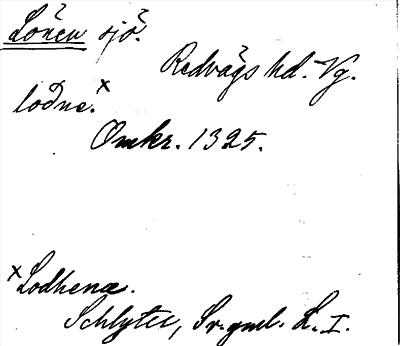 Lönen sjö.
Redvägs hd. Vg.
loðne.x
Omkr. 1325.
x Lodhenæ.
Schlyter, Sv. gml. L. I.